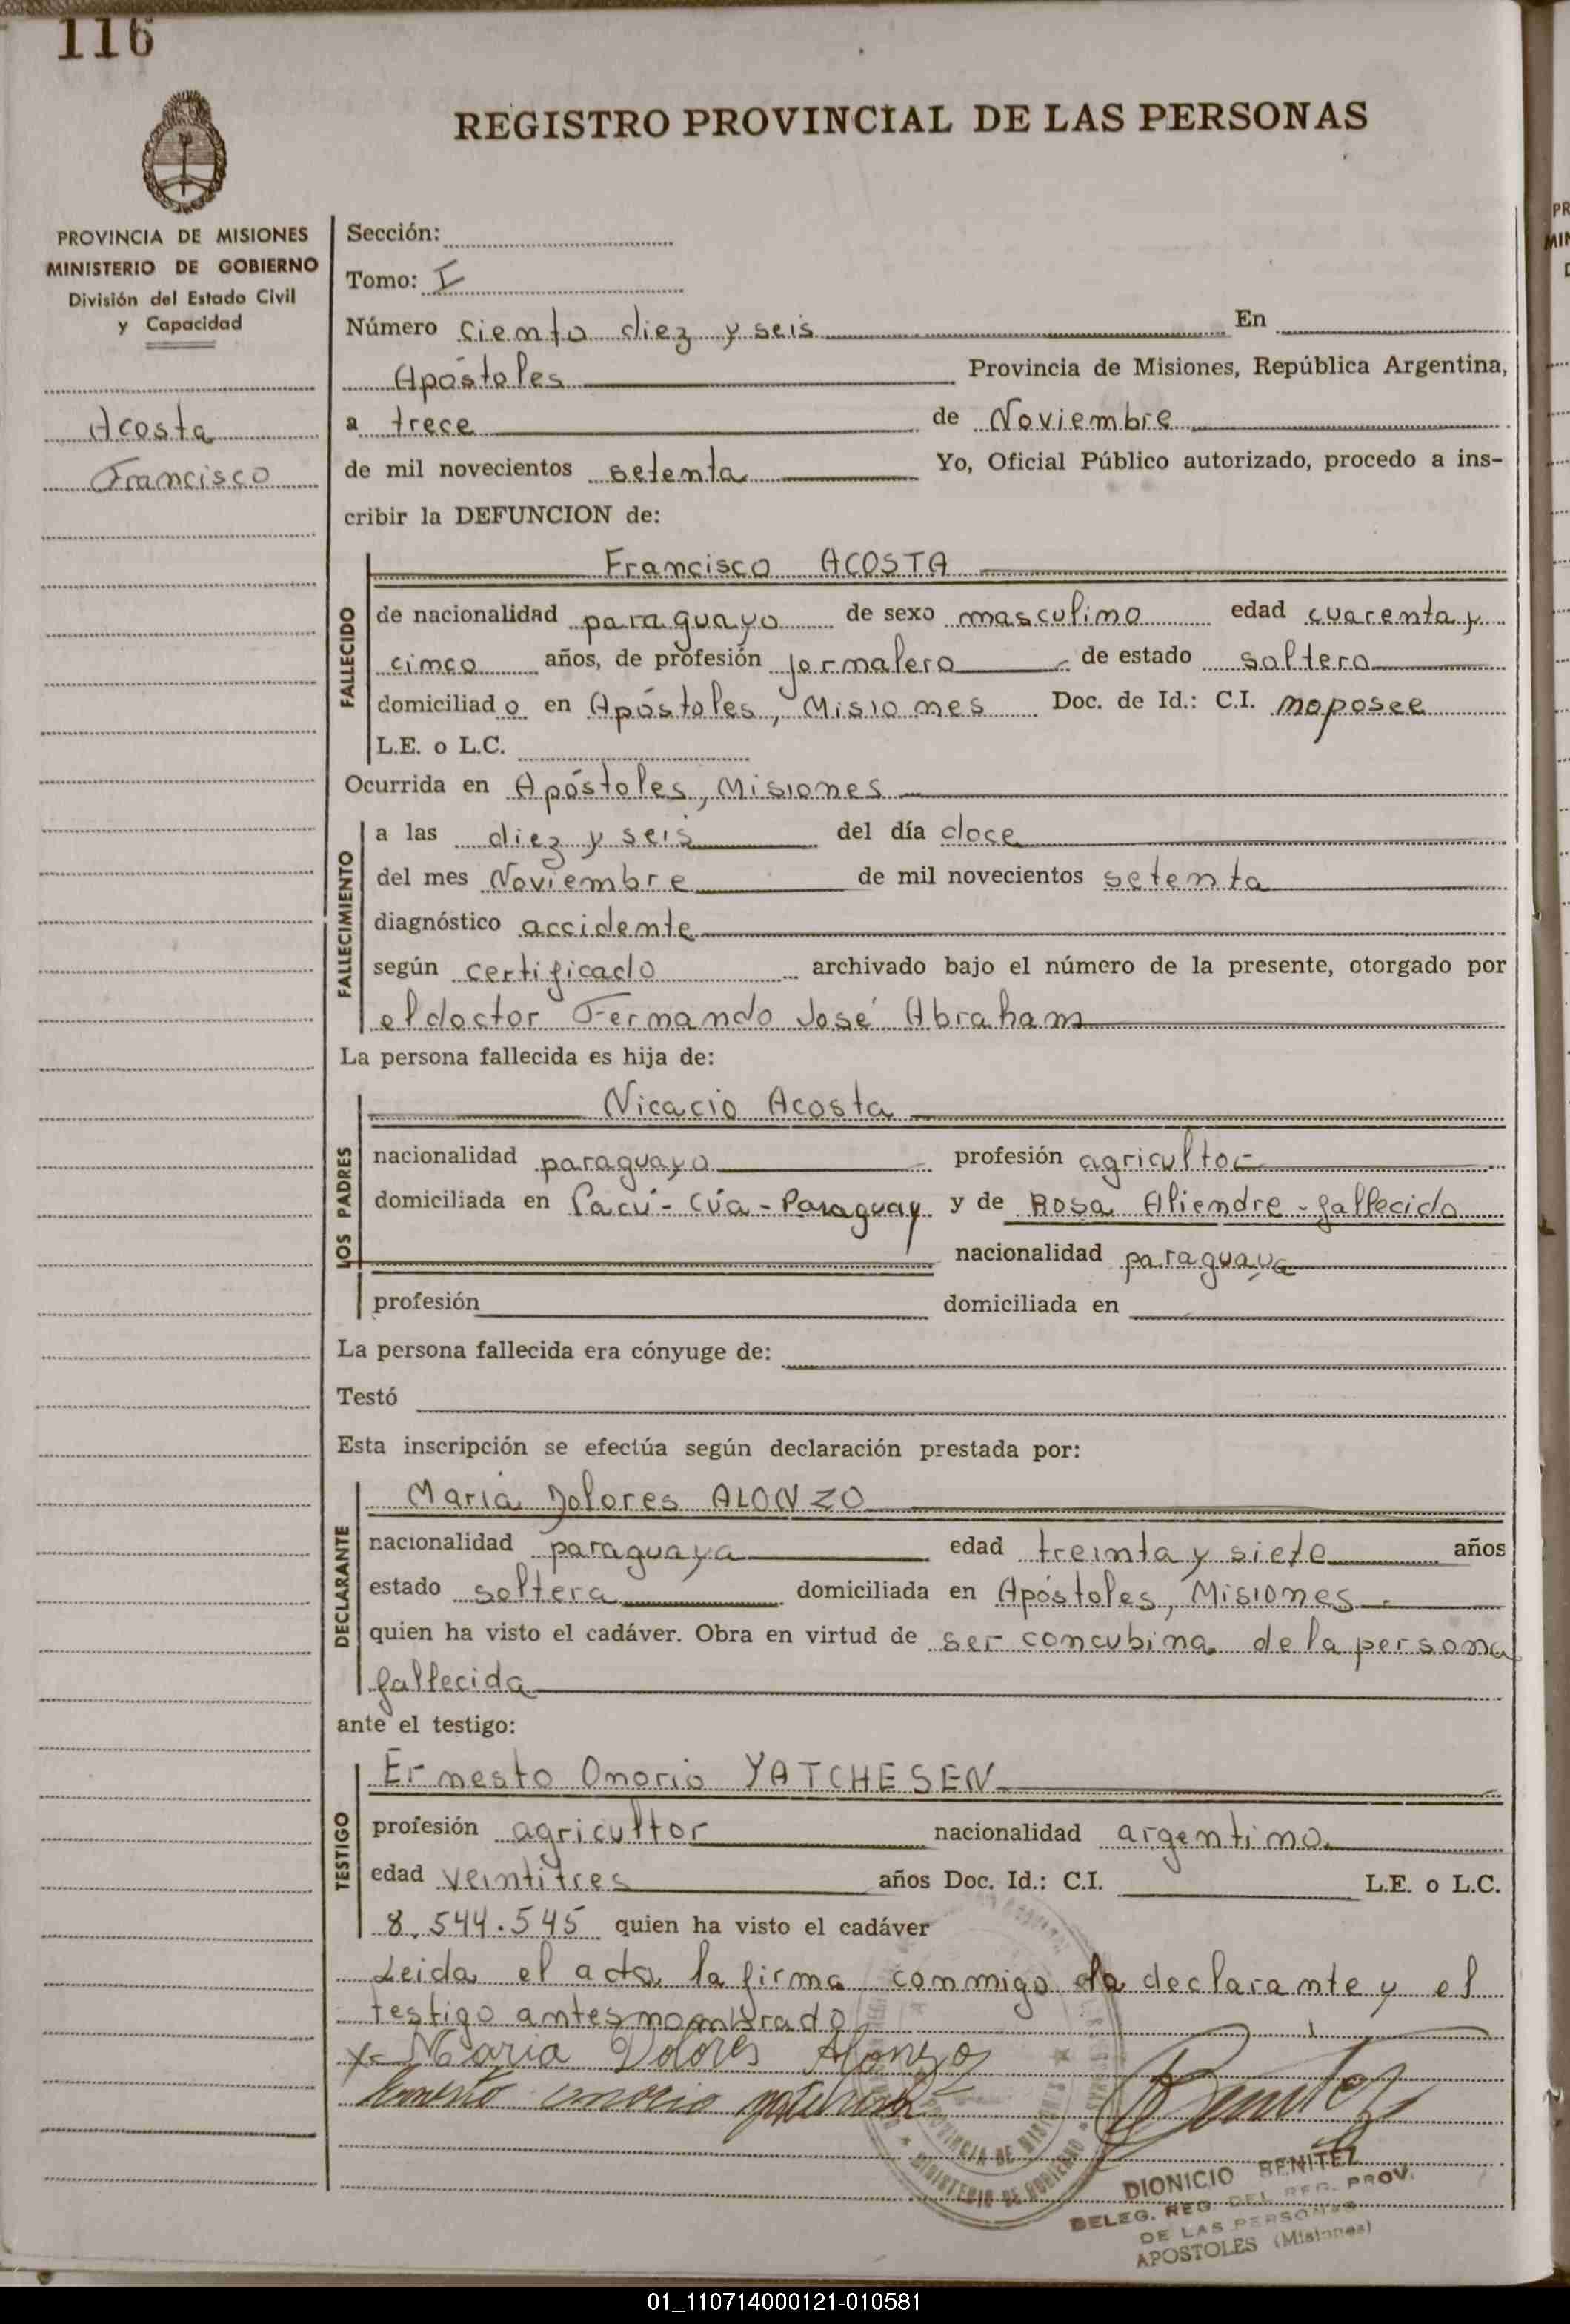 116
REGISTRO PROVINCIAL DE LAS PERSONAS
PROVINCIA DE MISIONES
MINISTERIO DE GOBIERNO
División del Estado Civil
y Capacidad
Acosta
Francisco
Sección:
Tomo: I
Número ciento diez y seis En
Apóstoles Provincia de Misiones, República Argentina,
a trece de Noviembre
de mil novecientos setenta Yo, Oficial Público autorizado, procedo a ins-
cribir la DEFUNCION de:
FALLECIDO
Francisco ACOSTA
de nacionalidad paraguayo de sexo masculino edad cuarenta y
cinco años, de profesión jornalero de estado soltero
domiciliado en Apóstoles, Misiones Doc. de Id.: C.I. no posee
L.E. o L.C.
Ocurrida en Apóstoles, Misiones
FALLECIMIENTO
a las diez y seis del día doce
del mes Noviembre de mil novecientos setenta
diagnóstico accidente
según certificado archivado bajo el número de la presente, otorgado por
el doctor Fernando José Abraham
La persona fallecida es hija de:
LOS PADRES
Nicacio Acosta
nacionalidad paraguayo profesión agricultor
domiciliada en Pacú-Cúa-Paraguay y de Rosa Aliendre-fallecida
nacionalidad paraguaya
profesión domiciliada en
La persona fallecida era cónyuge de:
Testó
Esta inscripción se efectúa según declaración prestada por:
DECLARANTE
María Dolores ALONZO
nacionalidad paraguaya edad treinta y siete años
estado soltera domiciliada en Apóstoles, Misiones
quien ha visto el cadáver. Obra en virtud de ser concubina de la persona
fallecida
ante el testigo:
TESTIGO
Ernesto Onorio YATCHESEN
profesión agricultor nacionalidad argentino
edad veintitres años Doc. Id.: C.I. L.E. o L.C.
8.544.545 quien ha visto el cadáver
Leida el acta la firma conmigo la declarante y el
testigo antes nombrado
x- Maria Dolores Alonzo
Ernesto onorio
Benitez
PROVINCIA DE MISIONES
MINISTERIO DE GOBIERNO
DIONICIO BENITEZ
DELEG. REG. DEL REG. PROV.
DE LAS PERSONAS
APOSTOLES (Misiones)
01_110714000121-010581